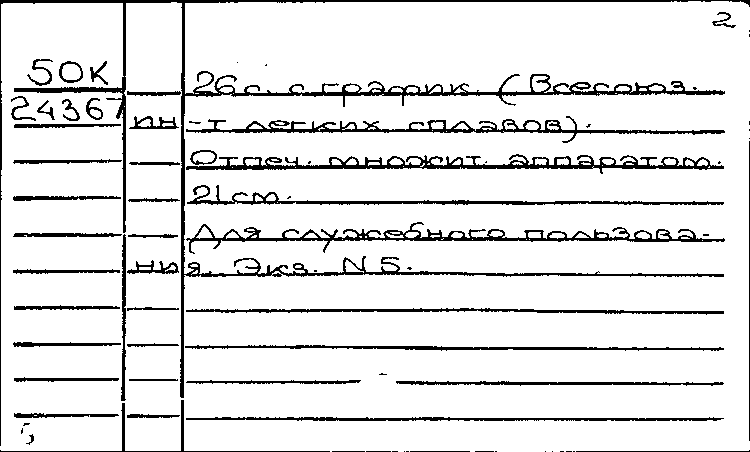 2
50К
24367
26с. с график. (Всесоюз.
ин-т легких сплавов).
Отпеч. множит. аппаратом.
21 см.
Для служебного пользова-
ния. Экз. N 5.